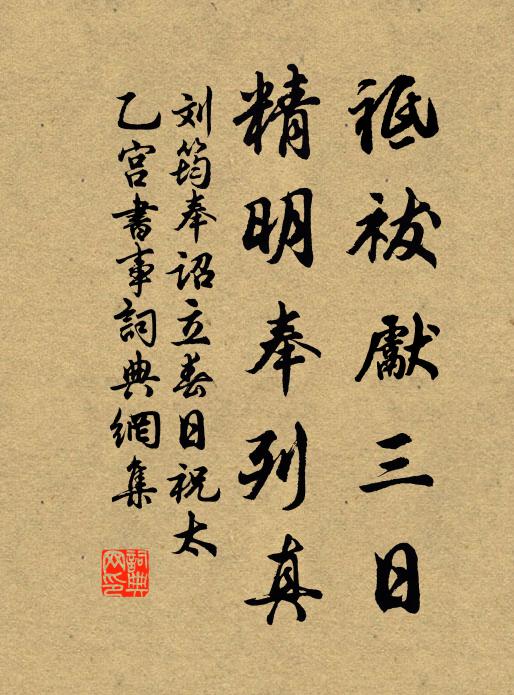 祗祓獻三日
精明奉列真
刘筠奉詔立春日祝太
乙宫書事詞典網集
詞典
网印